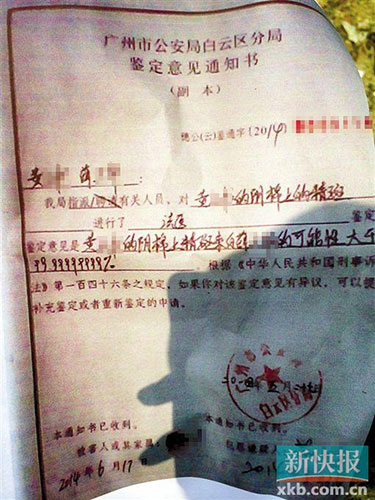 广州市公安局白云区分局
鉴定意见通知书
(副本)
穗公(云)鉴通字〔2014〕
黄 薛 :
我局指派/聘请有关人员,对黄 的阴棉上的精斑
进行了 法医 鉴定
鉴定意见是黄 的阴棉上精斑来自薛 的可能性大于
99.9999999%
。根据《中华人民共和国刑事诉
法》第一百四十六条之规定,如果你对该鉴定意见有异议,可以提
补充鉴定或者重新鉴定的申请。
本通知书已收到。
被害人或其家属:
2014年6月17日
本通知书已收到。
犯罪嫌疑
新快报
xkb.com.cn